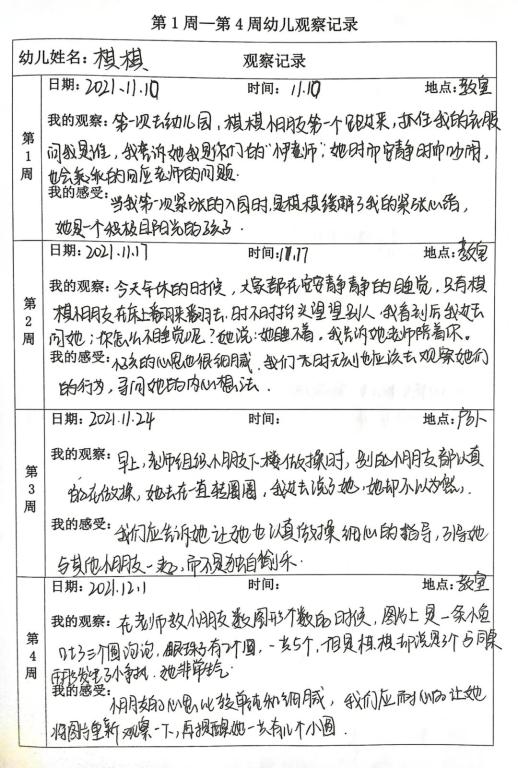 第1周—第4周幼儿观察记录
幼儿姓名：棋棋 观察记录
第1周
日期：2021.11.10 时间：11.10 地点：教室
我的观察：第一次去幼儿园，棋棋小朋友第一个跑过来，抓住我的衣服
问我是谁，我告诉她我是你们的“伊老师”；她时而安静时而吵闹，
也会积极的回应老师的问题.
我的感受：当我第一次紧张的入园时,是棋棋缓解了我的紧张心情，
她是一个积极且阳光的孩子.
第2周
日期：2021.11.17 时间：11.17 地点：教室
我的观察：今天午休的时候，大家都在安安静静的睡觉，只有棋
棋小朋友在床上翻来翻去，时不时抬头望望别人.我看到后我过去
问她；你怎么不睡觉呢？她说：她睡不着，我告诉她老师陪着你。
我的感受：孩子的心思也很细腻，我们无时无刻也应该去观察她们
的行为，寻问她的内心想法.
第3周
日期：2021.11.24 时间： 地点：户外
我的观察：早上，老师组织小朋友下楼做操时，别的小朋友都认真
的在做操，她却在一直转圈圈，我过去说了她，她却不以为然.
我的感受：我们应告诉她让她也认真做操细心的指导，引导她
与其他小朋友一起，而不是独自偷乐.
第4周
日期：2021.12.1 时间： 地点：教室
我的观察：在老师教小朋友数图形个数的时候，图片上是一条小鱼
吐了三个圆泡泡，眼珠子有2个圆，一共5个，但是棋棋却说是3个与同桌
发生了小争执.她非常生气.
我的感受：小朋友的心思比较单纯和细腻，我们应耐心的让她
将图片重新观察一下，再提醒她一共有几个小圆.